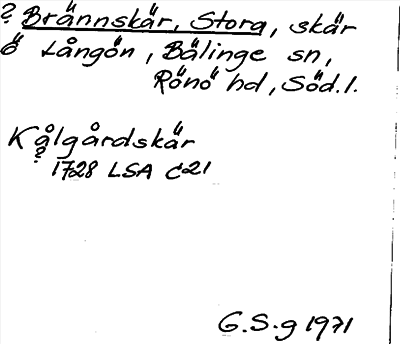 ? Brännskär, Stora, skär
ö Långön, Bälinge sn,
Rönö hd, Söd.l.
Kålgårdskär
? 1728 LSA C21
G.S-g 1971